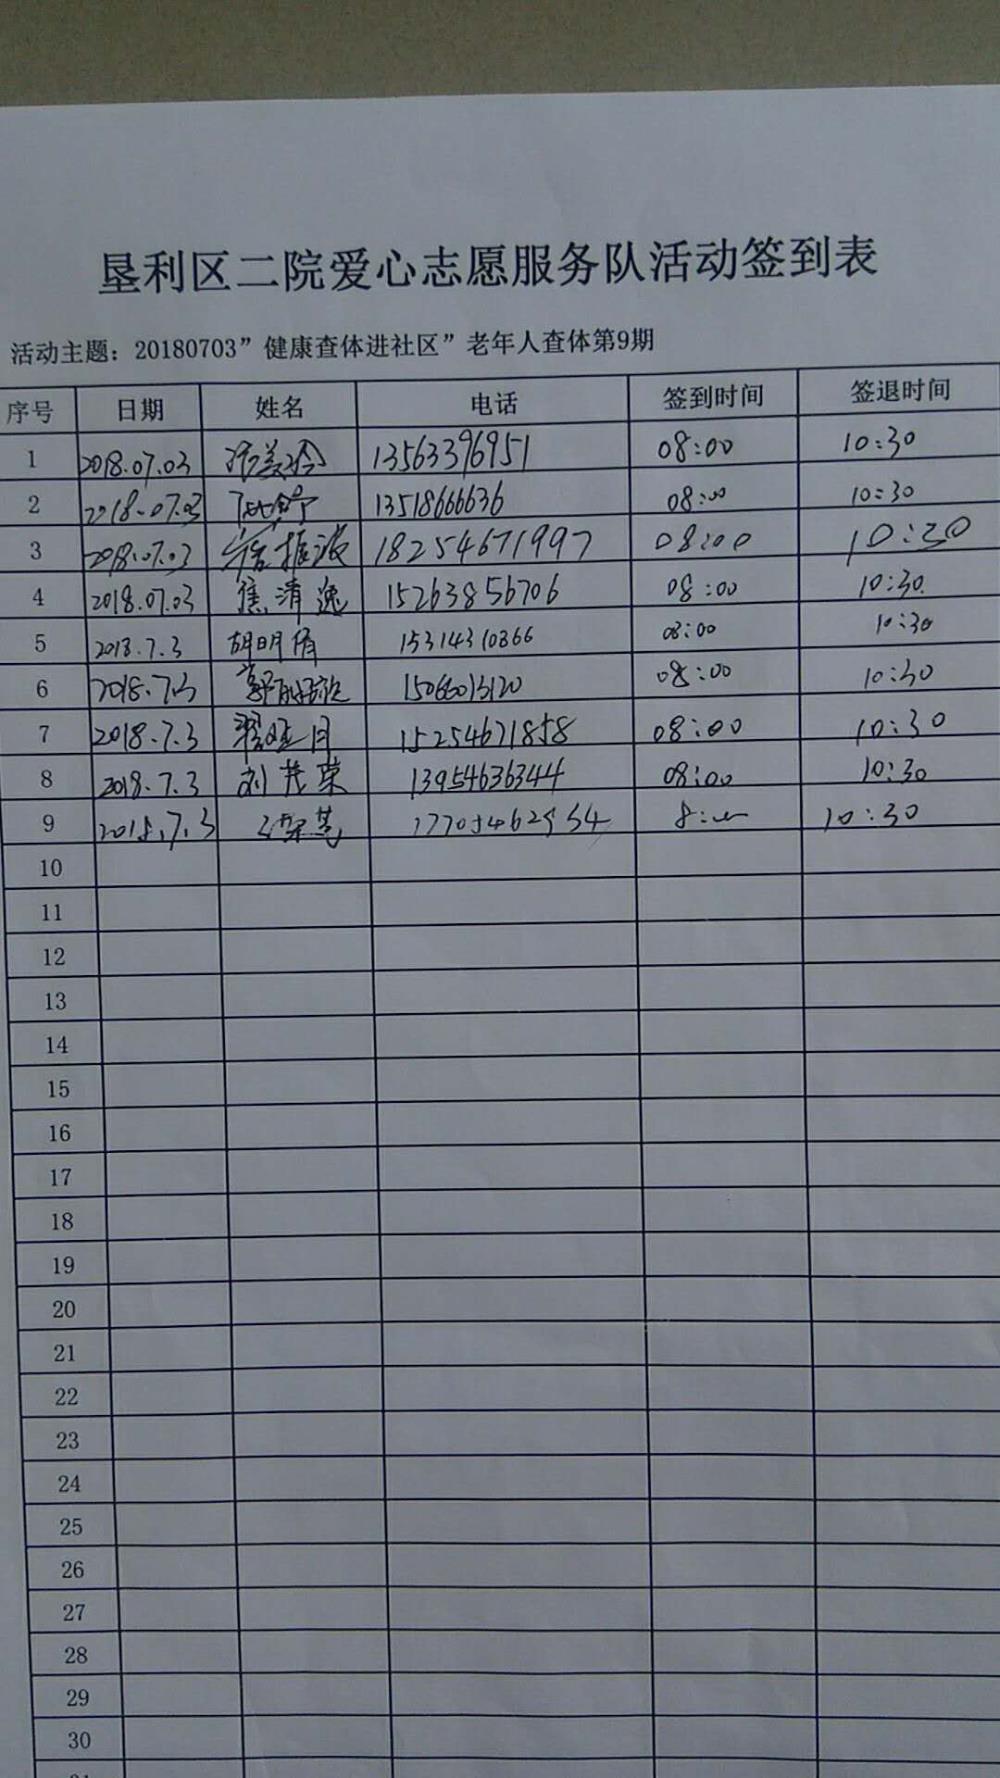 垦利区二院爱心志愿服务队活动签到表
活动主题：20180703”健康查体进社区”老年人查体第9期
序号 日期 姓名 电话 签到时间 签退时间
1 2018.07.03 13563396951 08:00 10:30
2 2018.07.03 13518666636 08:00 10:30
3 2018.07.03 18254671997 08:00 10:30
4 2018.07.03 焦清逸 15263856706 08:00 10:30
5 2018.7.3 胡明倩 15314310866 08:00 10:30
6 2018.7.3 15066013120 08:00 10:30
7 2018.7.3 15254671858 08:00 10:30
8 2018.7.3 刘茂荣 13954636344 08:00 10:30
9 2018.7.3 8:00 10:30
10
11
12
13
14
15
16
17
18
19
20
21
22
23
24
25
26
27
28
29
30